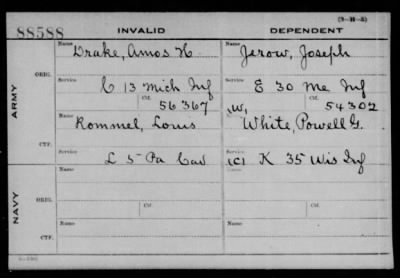 (3-H-5)
88588 INVALID DEPENDENT
Name Name
Drake, Amos H. Jerow, Joseph
ORIG. Service Service
C 13 Mich Inf E 30 Me Inf
Ctf. Ctf.
56367 W, 54302
ARMY
Name Name
Rommel, Louis White, Powell G.
CTF. Service Service
L 5 Pa Cav (C) K 35 Wis Inf
Name Name
ORIG. Service Service
Ctf. Ctf.
NAVY
Name Name
CTF. Service Service